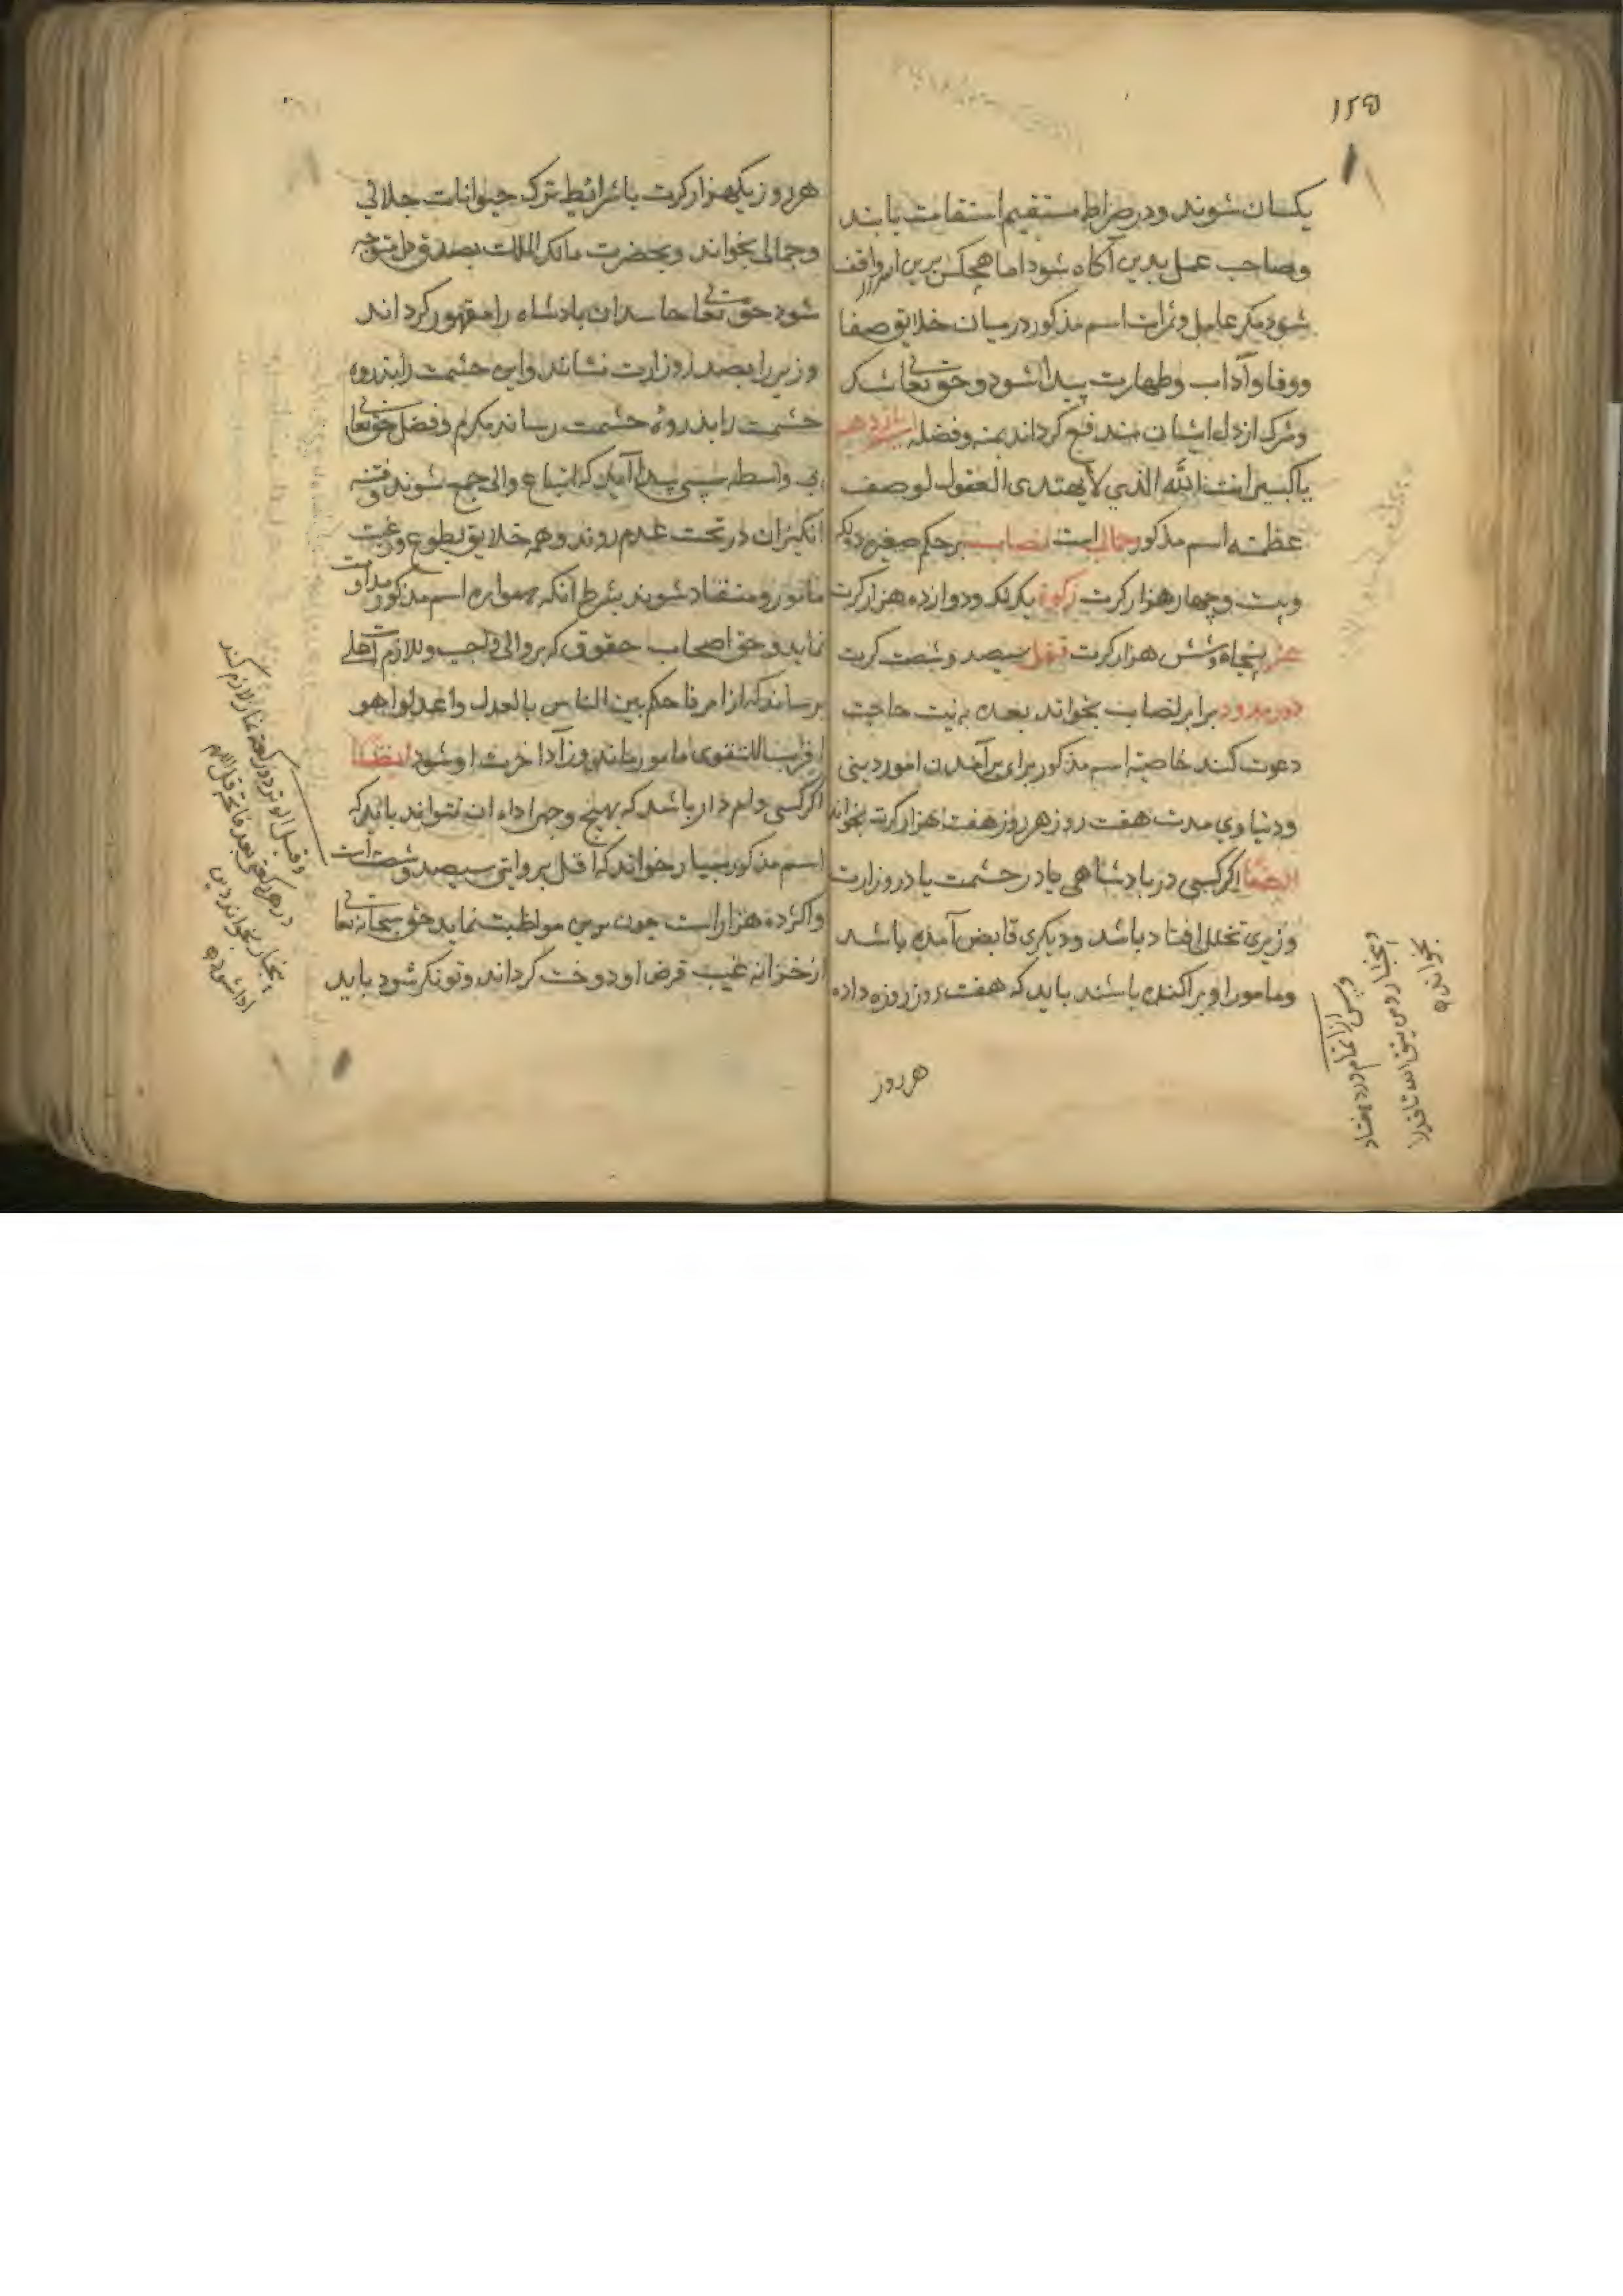 ۱۲۵
یکسان شوند و در صراط مستقیم استقامت یابند
و صاحب عمل بدین آکاه شود اما هیچکس برین اسرار واقف
شود مکر عامل و ثمرات اسم مذکور در میان خلایق صفا
و وفا و آداب و طهارت پیدا شود و حق تعالی شک
و شرک از دل ایشان مندفع کرداند بمنه و فضله
یا کبیر انت الله الذی لا یهتدی العقول لوصف
عظمته اسم مذکور جمالی است نصاب بر حکم صغیر دو لک
و بیست و چهار هزار کرت زکوة یک لک و دوازده هزار کرت
عشر پنجاه و شش هزار کرت قفل سیصد و شصت کرت
دور مدور برابر نصاب بخواند بعده به نیت حاجت
دعوت کند خاصیة اسم مذکور برای برآمدن امور دینی
و دنیاوی مدت هفت روز هر روز هفت هزار کرت بخواند
ایضا اکر کسی در بادشاهی یا در حشمت یا در وزارت
وزیری تخلل افتاد باشد و دیکری قابض آمده باشد
و مامور او پراکنده باشند باید که هفت روز روزه داده
هر روز
بخواند
هر روز یکهزار کرت با شرائط ترک حیوانات جلالی
و جمالی بخواند و بحضرت مالک الملک بصدق دل متوجه
شود حق تعالی حاسدان بادشاه را مقهور کرداند
و وزیر را بصدر وزارت نشاند و این حشمت را بذروه
حشمت را بذروهٔ حشمت رساند مکرم و فضل حق تعالی
بی واسطه سببی پیدا آید که اتباع والی جمع شوند و فتنه
انکیزان در تحت عدم روند و همه خلایق بطوع و رغبت
مامور و منقاد شوند بشرط انکه همواره اسم مذکور مداومت
نماید و حق اصحاب حقوق که بر والی واجب و لازم است
برساند که از امر فاحکم بین الناس بالعدل و اعدلوا هو
اقرب للتقوی مامور ماند و زاد آخرت او شود ایضا
اکر کسی وام دار باشد که بهیچ وجه اداء ان نتواند باید که
اسم مذکور بسیار خواند که اقل بروایتی سیصد و شصت است
و اکثر ده هزار است چون برین مواظبت نماید حق سبحانه تعالی
از خزانه غیب قرض او دوخت کرداند و تونکر شود باید
و قبل الوتر دو رکعة نماز لازم کند
در هر رکعتی بعد فاتحه قل اللهم
پنجبار بخواند دین
ادا شود